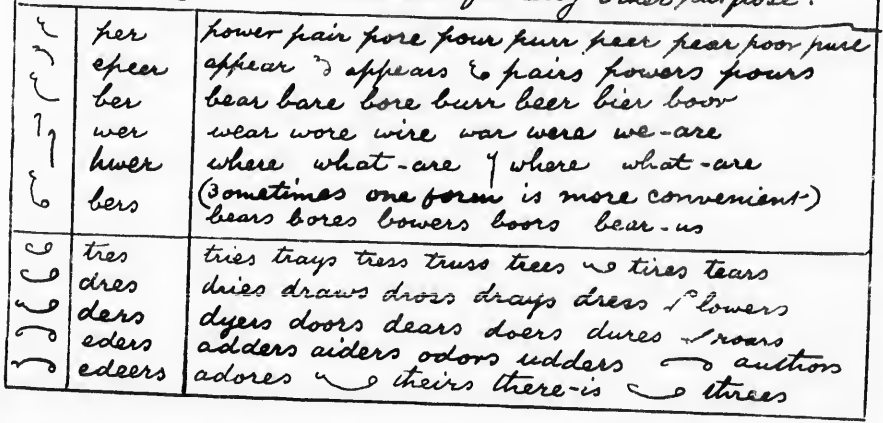 other purpose.
per power pair pore pour purr peer pear poor pure
epeer appear appears pairs powers pours
ber bear bare bore burr beer bier boor
wer wear wore wire war were we-are
hwer where what-are where what-are
bers (Sometimes one form is more convenient)
bears bores bowers boors bear-us
tres tries trays tress truss trees tires tears
dres dries draws dross drays dress lowers
ders dyers doors dears doers dures roars
eders adders aiders odors udders authors
edeers adores theirs there-is threes